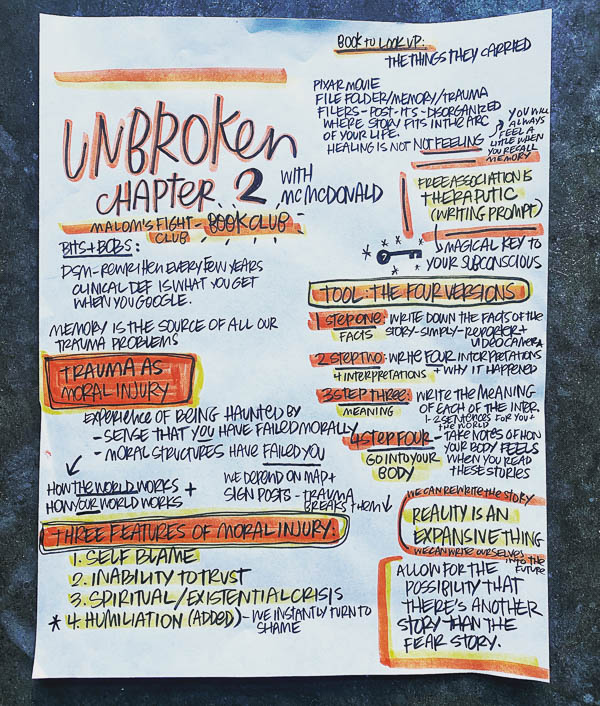 UNBROKEN
CHAPTER 2 WITH
MC MCDONALD
MALOM'S FIGHT - BOOK CLUB -
CLUB
BITS + BOBS:
DSM - REWRITTEN EVERY FEW YEARS
CLINICAL DEF IS WHAT YOU GET
WHEN YOU GOOGLE.
MEMORY IS THE SOURCE OF ALL OUR
TRAUMA PROBLEMS
TRAUMA AS
MORAL INJURY
EXPERIENCE OF BEING HAUNTED BY
- SENSE THAT YOU HAVE FAILED MORALLY
- MORAL STRUCTURES HAVE FAILED YOU
HOW THE WORLD WORKS +
HOW OUR WORLD WORKS
WE DEPEND ON MAP +
SIGN POSTS - TRAUMA
BREAKS THEM
THREE FEATURES OF MORAL INJURY:
1. SELF BLAME
2. INABILITY TO TRUST
3. SPIRITUAL/EXISTENTIAL CRISIS
* 4. HUMILIATION (ADDED) - WE INSTANTLY TURN TO
SHAME
BOOK TO LOOK UP:
THE THINGS THEY CARRIED
PIXAR MOVIE
FILE FOLDER/MEMORY/TRAUMA
FILERS - POST-ITS - DISORGANIZED
WHERE STORY FITS IN THE ARC
OF YOUR LIFE.
HEALING IS NOT NOT FEELING
YOU WILL
ALWAYS
FEEL A
LITTLE WHEN
YOU RECALL
MEMORY
FREE ASSOCIATION IS
THERAPUTIC
(WRITING PROMPT)
MAGICAL KEY TO
YOUR SUBCONSCIOUS
TOOL: THE FOUR VERSIONS
1 STEP ONE: WRITE DOWN THE FACTS OF THE
FACTS STORY - SIMPLY - REPORTER +
VIDEO CAMERA
2 STEP TWO: WRITE FOUR INTERPRETATIONS
4 INTERPRETATIONS + WHY IT HAPPENED
3 STEP THREE: WRITE THE MEANING
MEANING OF EACH OF THE INTER.
1-2 SENTENCES FOR YOU +
THE WORLD
4 STEP FOUR - TAKE NOTES OF HOW
GO INTO YOUR YOUR BODY FEELS
BODY WHEN YOU READ
THESE STORIES
WE CAN REWRITE THE STORY
REALITY IS AN
EXPANSIVE THING
WE CAN WRITE OURSELVES INTO THE
FUTURE
ALLOW FOR THE
POSSIBILITY THAT
THERE'S ANOTHER
STORY THAN THE
FEAR STORY.